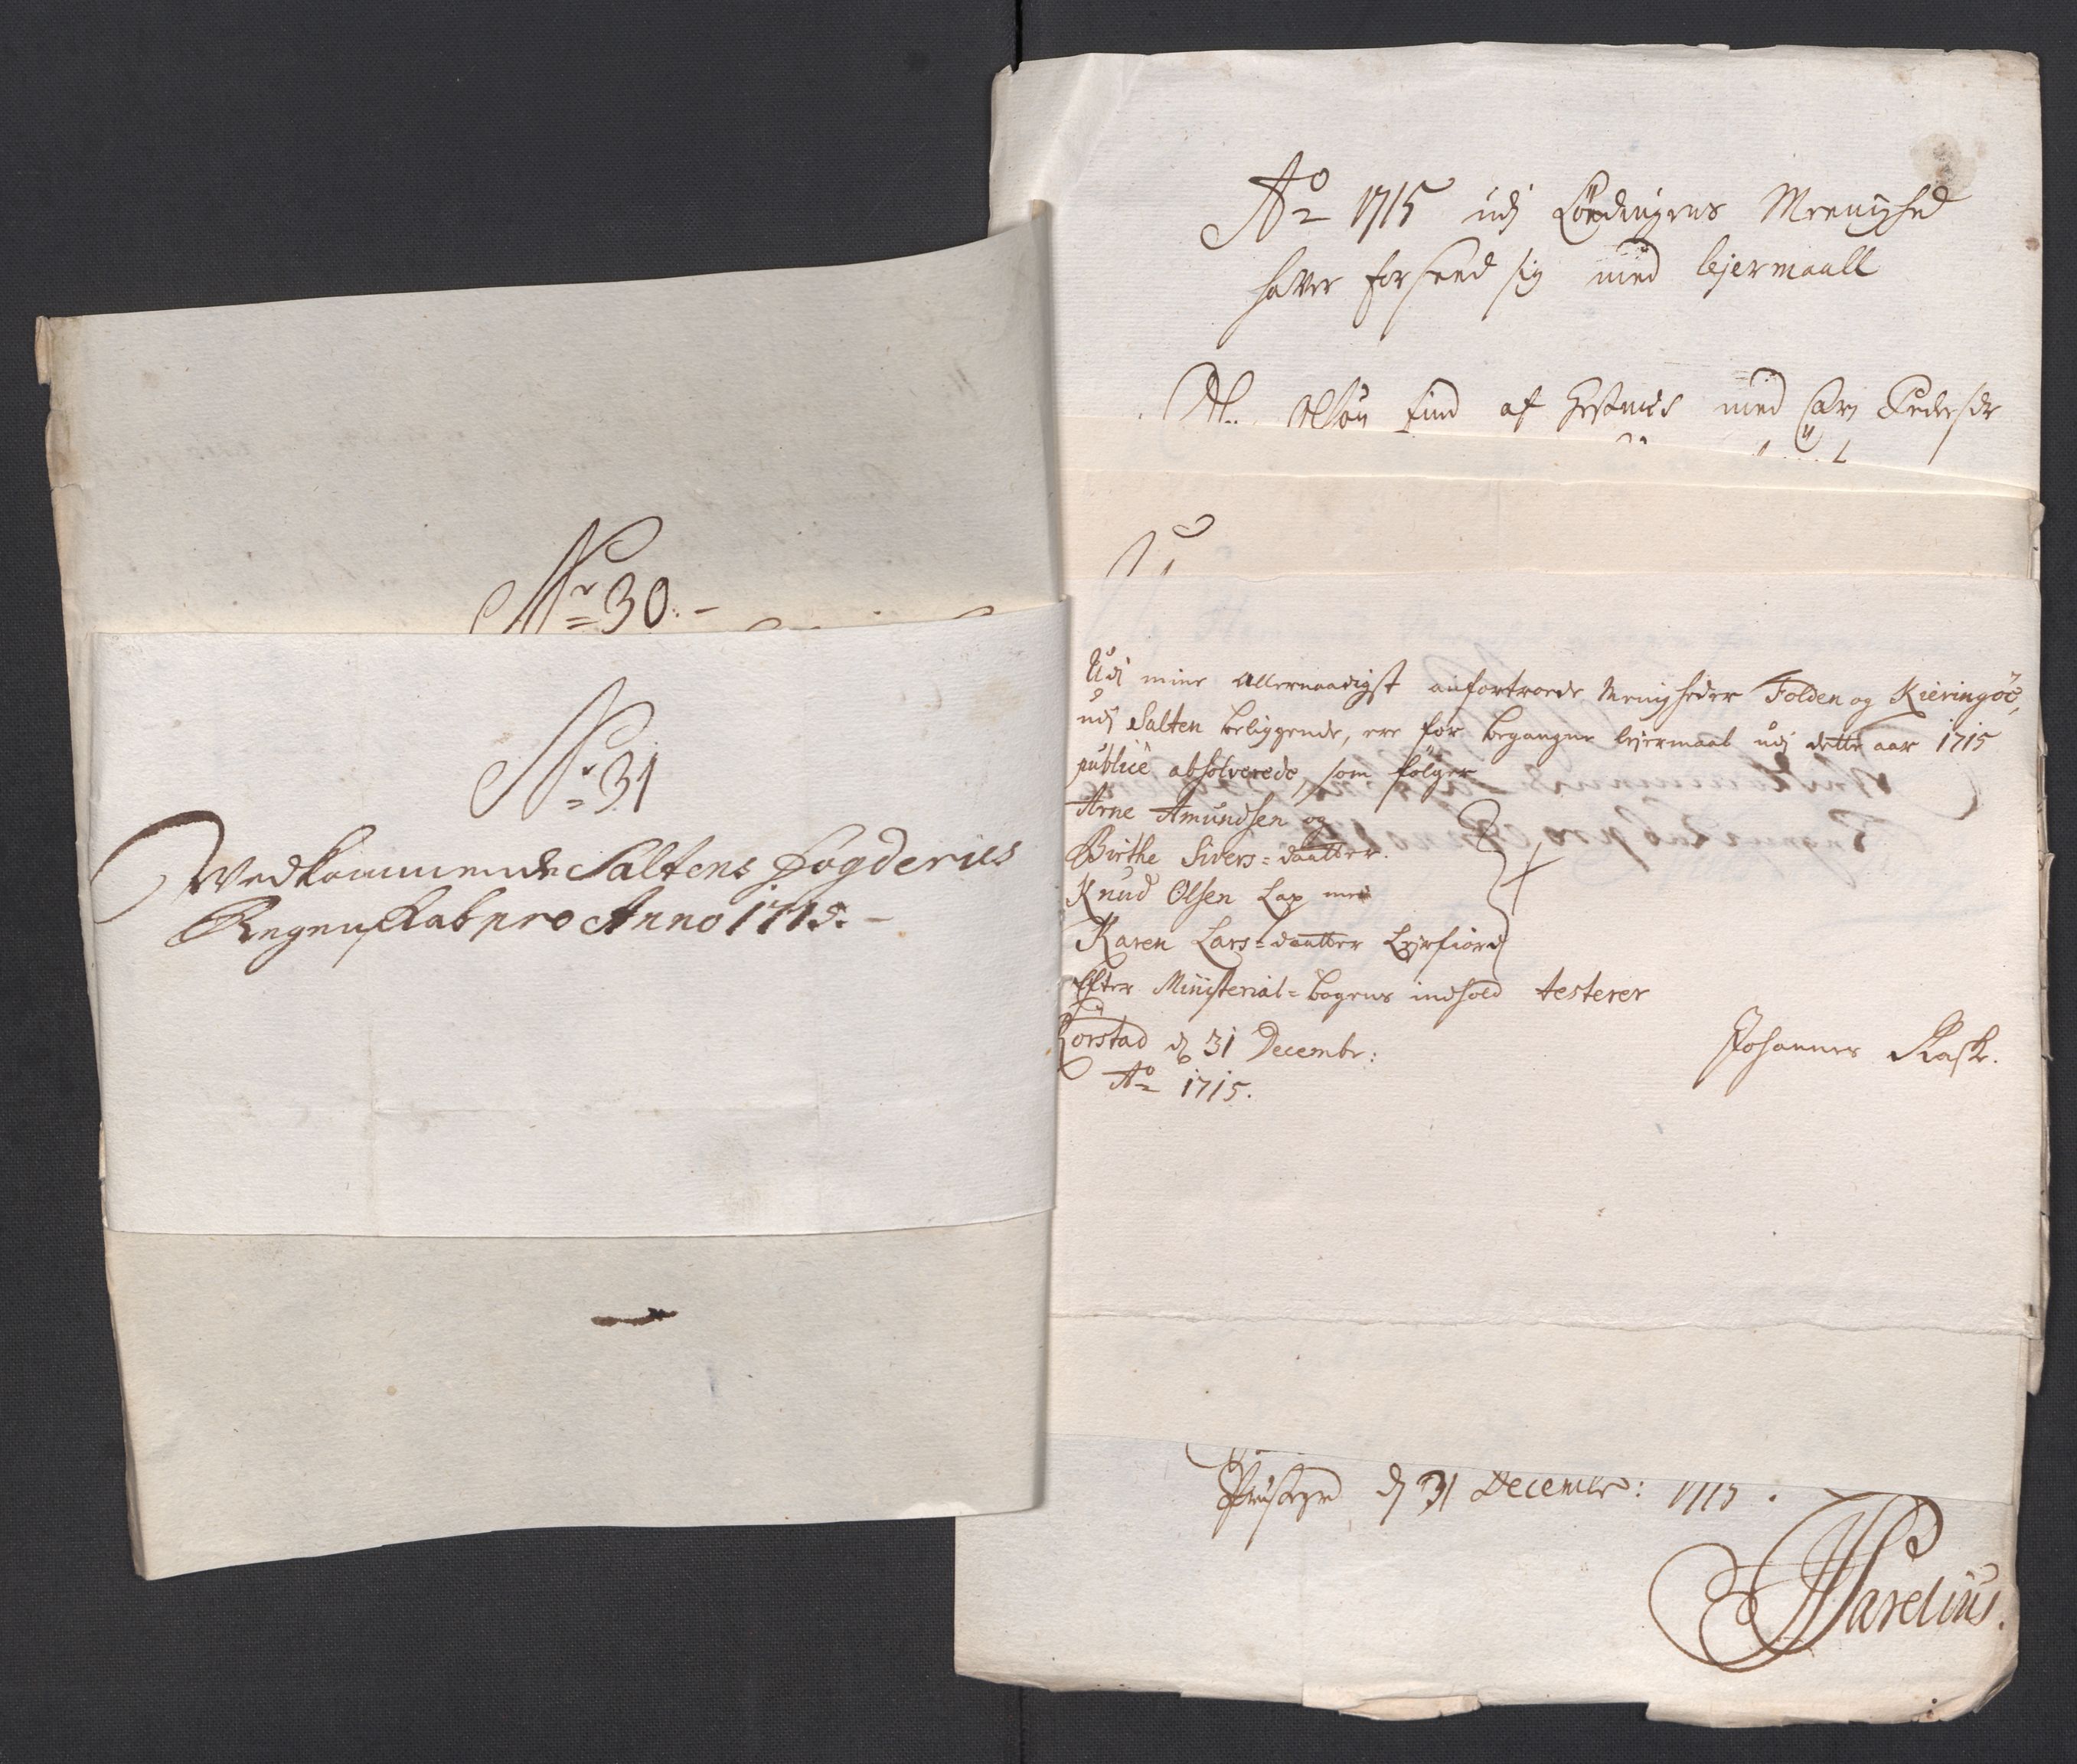 No 30.-
No 31
Vedkommende Saltens Fogderies
Regenskab pro Anno 1715.-
Ao 1715 udj Lödingens Meenighed
haver forseed sig med lejermaall
Olsøn find af med Carj Pedersdr
Udj mine allernaadigst anfortroede Menigheder Folden og Kieringöe,
udj Salten beliggende, ere for begangne lejermaal udj dette aar 1715
publicè absolverede, som fölger
Arne Amundsen og
Birthe Sivers=daatter.
Knud Olsen Lap med
Karen Lars=daatter Lejrfiord
Efter Ministerial=bogens indhold testerer
Rörstad d 31 Decembr:
Johannes Rask.
Ao 1715.
d 31 Decembr: 1715.